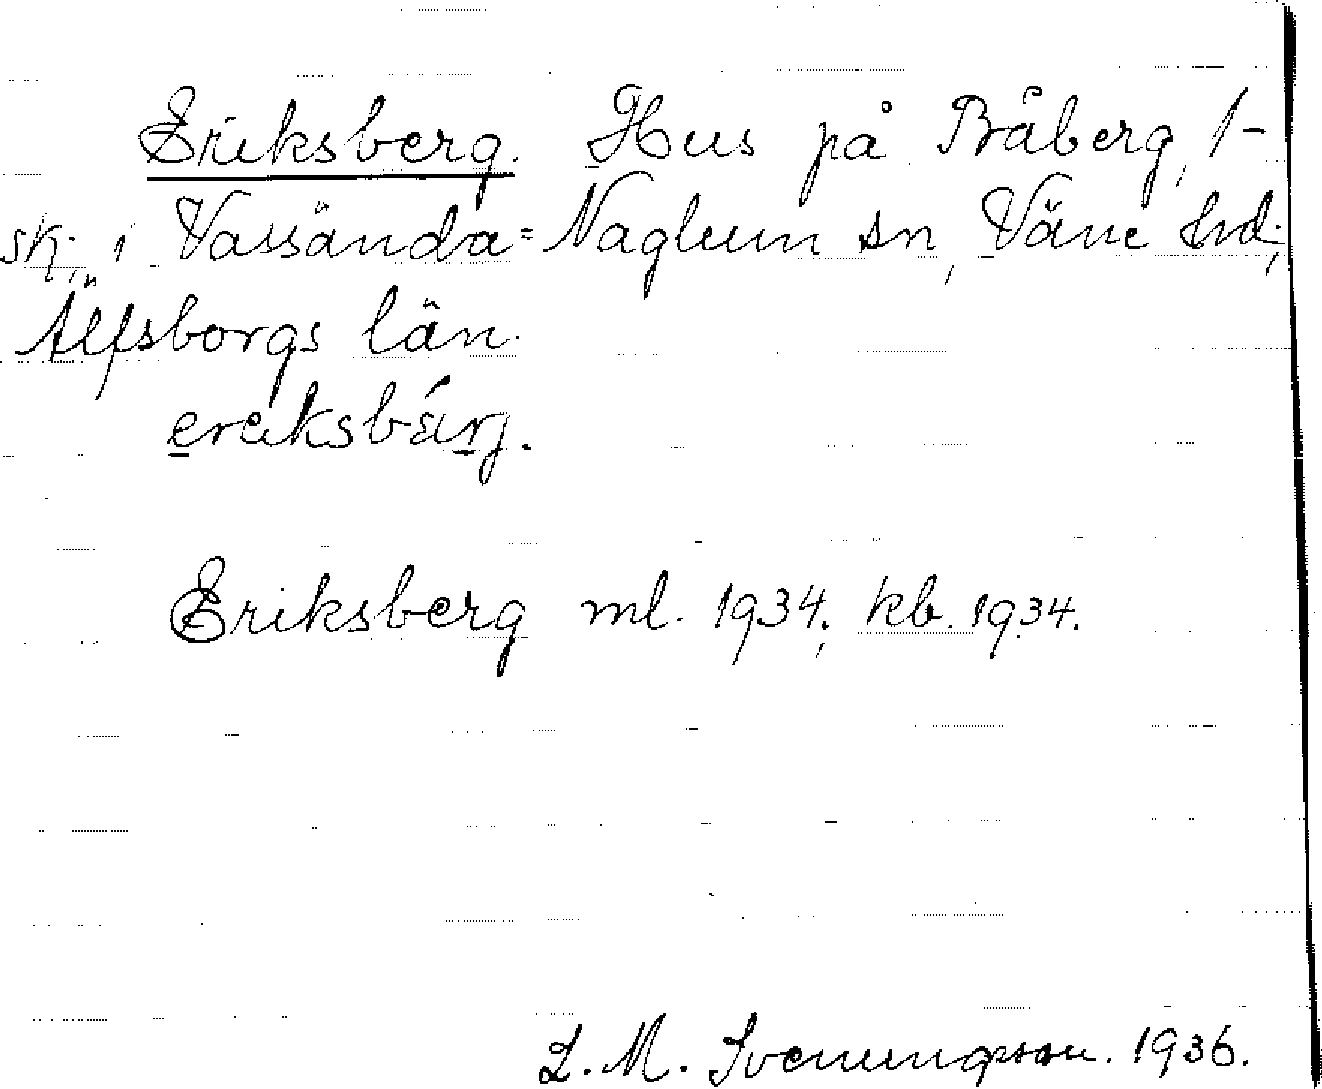 Eriksberg. Hus på Båberg, f-
sk; i Vassända=Naglum sn, Väne hd;
Älfsborgs län.
Eriksberg ml. 1934; kb. 1934.
L. M. Svenungsson. 1936.